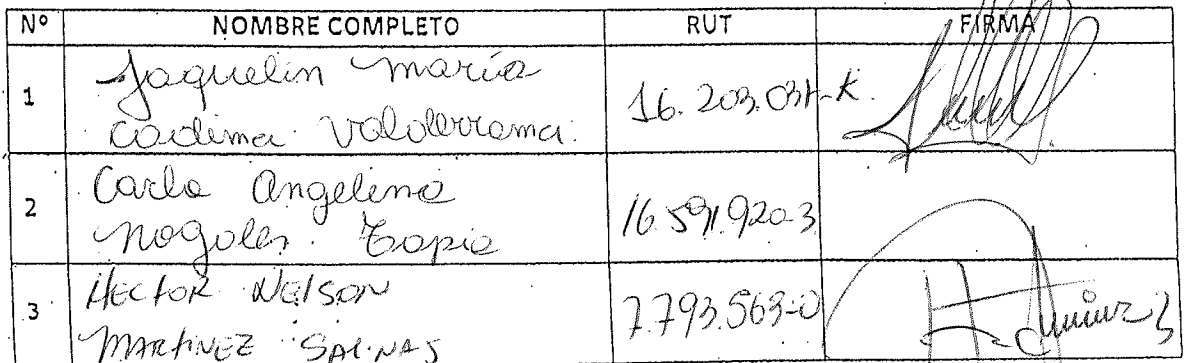 Nº NOMBRE COMPLETO RUT FIRMA
1 Jaquelin María
Cadima Valderrama. 16.203.031-K.
2 Carla Angelina
Nogales Tapia 16.591.920-3
3 HECTOR NELSON
MARTINEZ SALINAS 7.793.563-0